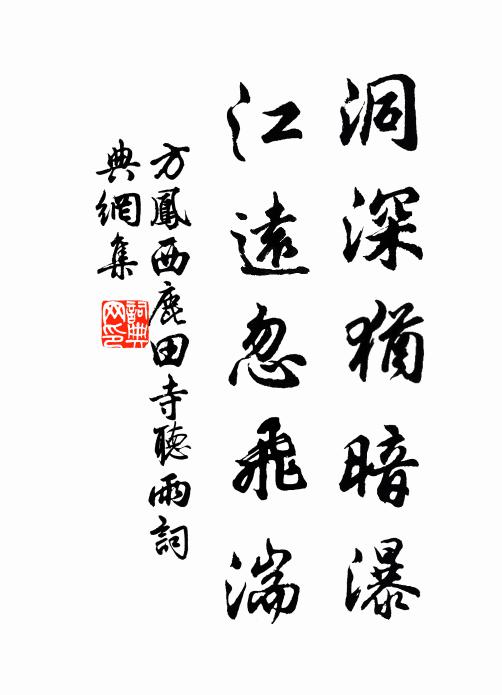 洞深猶暗瀑
江遠忽飛湍
方鳳西鹿田寺聽雨詞
典網集
詞典
网印